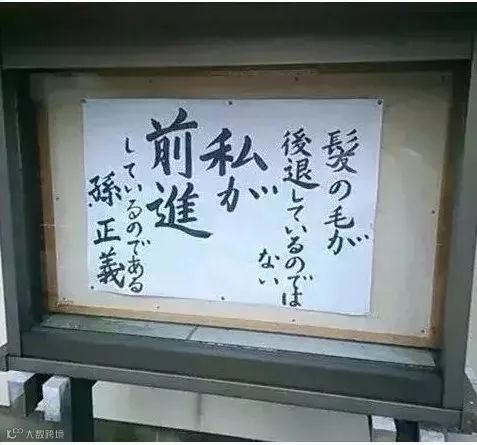 髪の毛が
後退しているのでは
ない
私が
前進
しているのである
孫正義
大数跨境